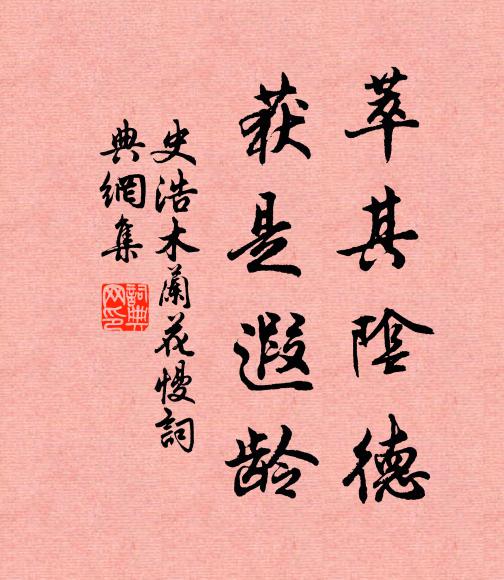 萃其陰德
获是遐龄
史浩木蘭花慢詞
典網集
詞典网印